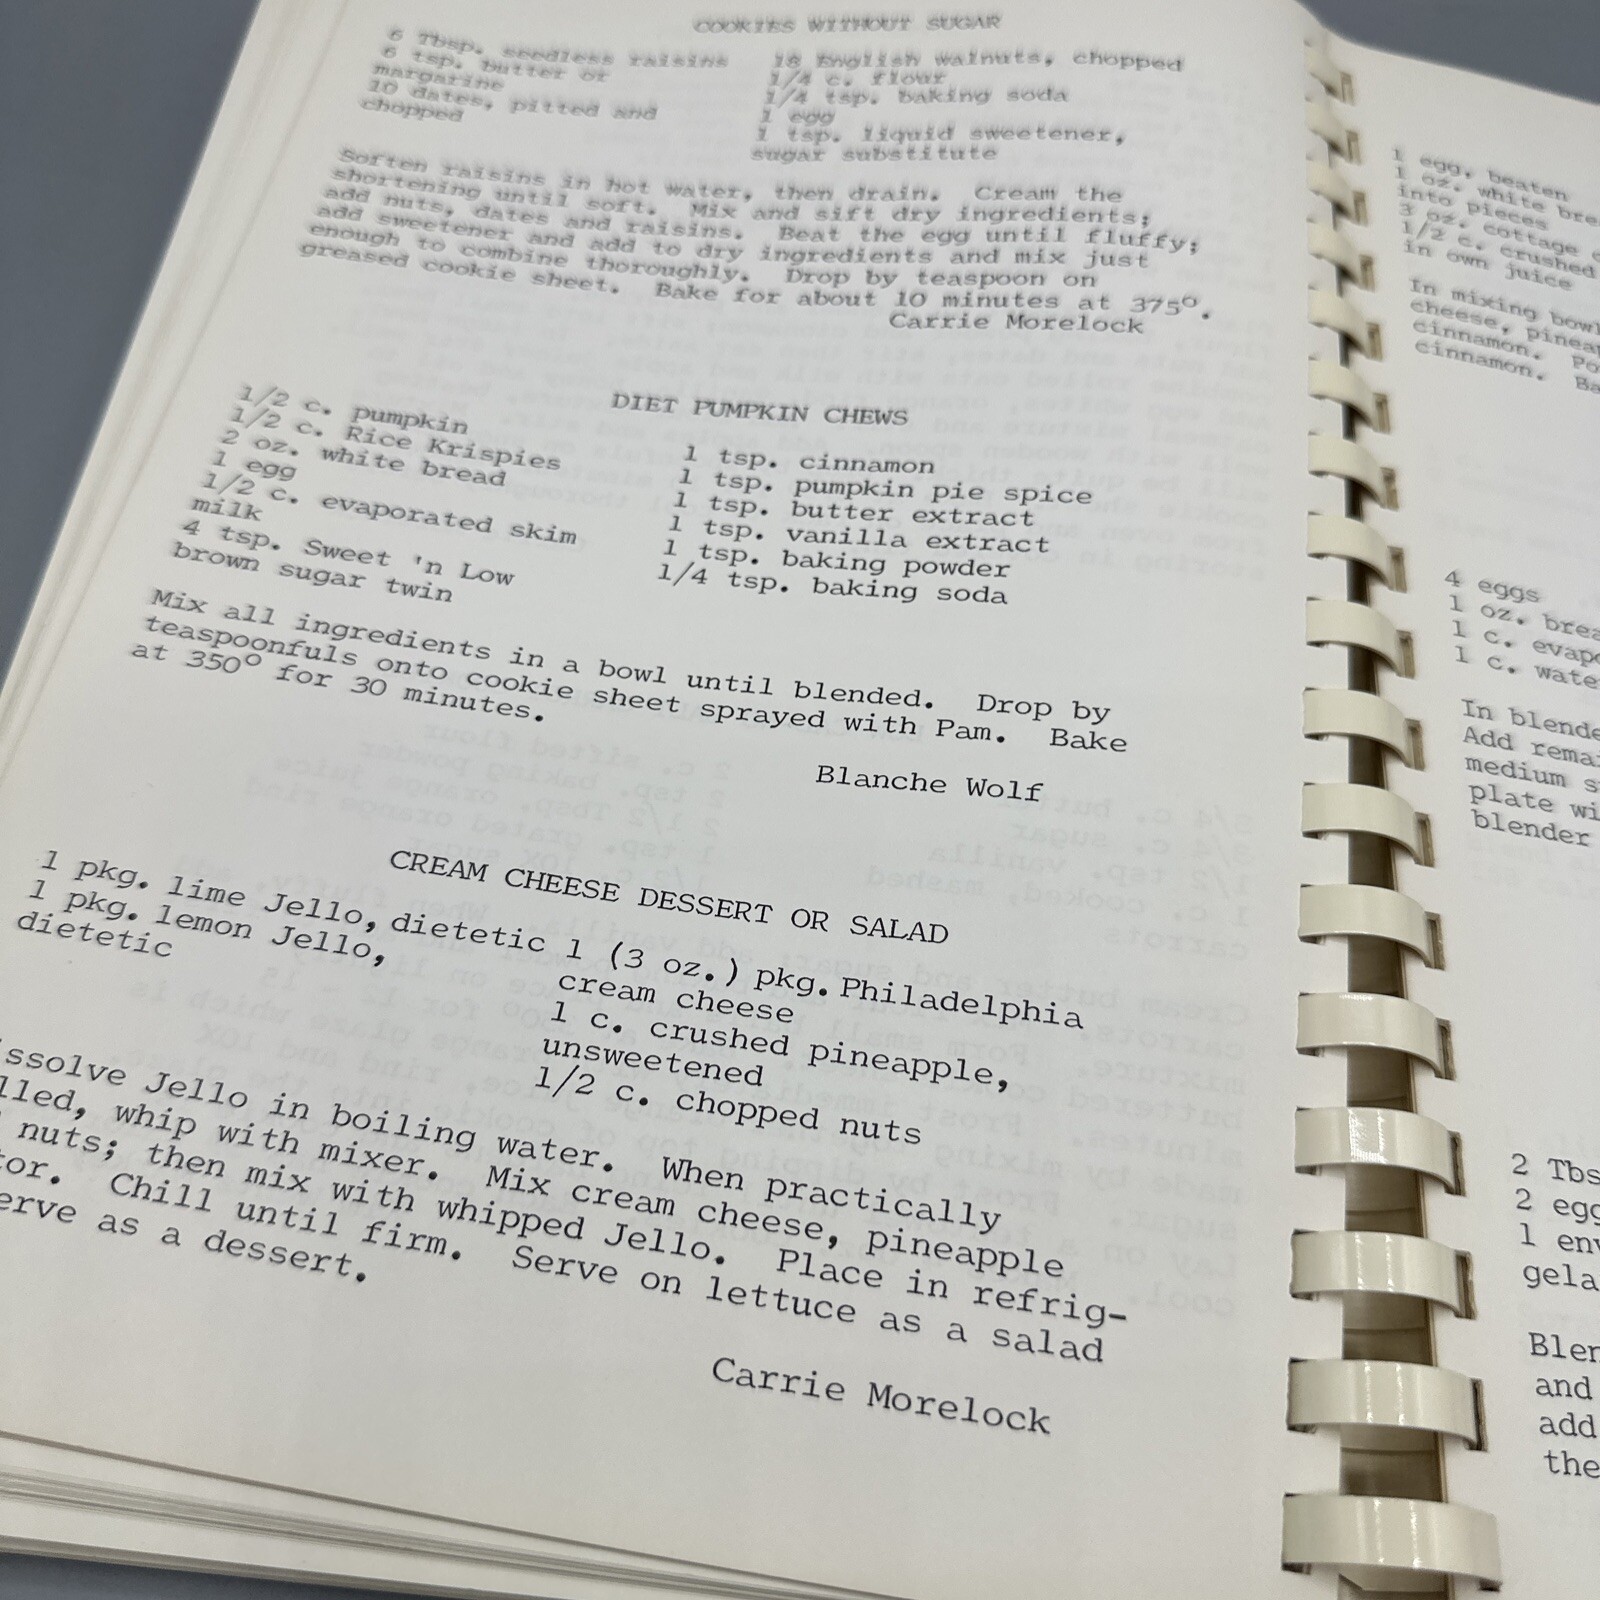 COOKIES WITHOUT SUGAR
6 Tbsp. seedless raisins
6 tsp. butter or
margarine
10 dates, pitted and
chopped
18 English walnuts, chopped
1/4 c. flour
1/4 tsp. baking soda
1 egg
1 tsp. liquid sweetener,
sugar substitute
Soften raisins in hot water, then drain. Cream the
shortening until soft. Mix and sift dry ingredients;
add nuts, dates and raisins. Beat the egg until fluffy;
add sweetener and add to dry ingredients and mix just
enough to combine thoroughly. Drop by teaspoon on
greased cookie sheet. Bake for about 10 minutes at 375°.
Carrie Morelock
DIET PUMPKIN CHEWS
1/2 c. pumpkin
1/2 c. Rice Krispies
2 oz. white bread
1 egg
1/2 c. evaporated skim
milk
4 tsp. Sweet 'n Low
brown sugar twin
1 tsp. cinnamon
1 tsp. pumpkin pie spice
1 tsp. butter extract
1 tsp. vanilla extract
1 tsp. baking powder
1/4 tsp. baking soda
Mix all ingredients in a bowl until blended. Drop by
teaspoonfuls onto cookie sheet sprayed with Pam. Bake
at 350° for 30 minutes.
Blanche Wolf
CREAM CHEESE DESSERT OR SALAD
1 pkg. lime Jello, dietetic
1 pkg. lemon Jello,
dietetic
1 (3 oz.) pkg. Philadelphia
cream cheese
1 c. crushed pineapple,
unsweetened
1/2 c. chopped nuts
ssolve Jello in boiling water. When practically
lled, whip with mixer. Mix cream cheese, pineapple
nuts; then mix with whipped Jello. Place in refrig-
tor. Chill until firm. Serve on lettuce as a salad
erve as a dessert.
Carrie Morelock
1 egg, beaten
1 oz. white bre
into pieces
3 oz. cottage c
1/2 c. crushed
in own juice
In mixing bowl
cheese, pineap
cinnamon. Po
cinnamon. Ba
4 eggs
1 oz. brea
1 c. evapo
1 c. wate
In blende
Add remai
medium s
plate wi
blender
2 Tbs
2 egg
1 env
gela
Blen
and
add
the